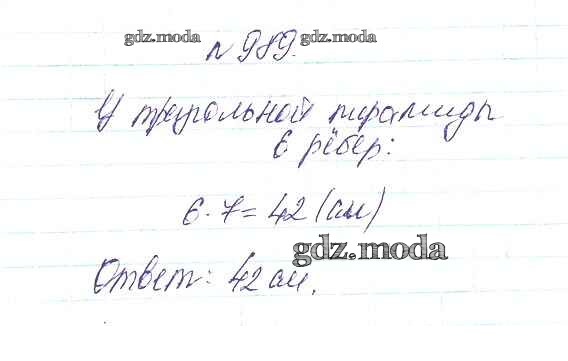 gdz.moda № 989. gdz.moda
У треугольной пирамиды
6 рёбер:
6 · 7 = 42 (см)
gdz.moda
Ответ: 42 см.